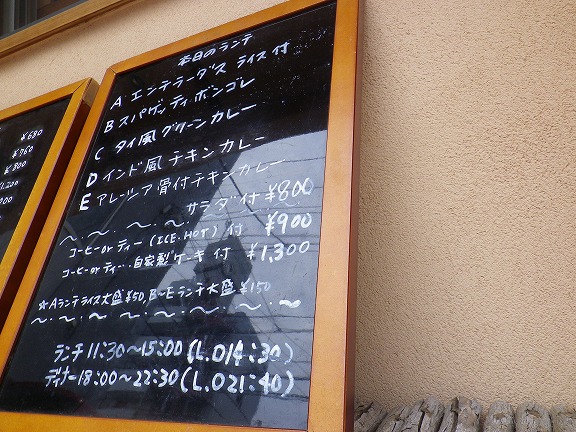 本日のランチ
A エンチラーダス ライス付
B スパゲッティボンゴレ
C タイ風グリーンカレー
D インド風チキンカレー
E アレーシア骨付チキンカレー
サラダ付 ¥800
コーヒー or ティー (ICE・HOT) 付 ¥900
コーヒー or ティー・・自家製ケーキ 付 ¥1,300
☆Aランチライス大盛¥50, B〜Eランチ大盛¥150
ランチ 11:30〜15:00 (L.O14:30)
ディナー 18:00〜22:30 (L.O21:40)
¥680
¥760
¥800